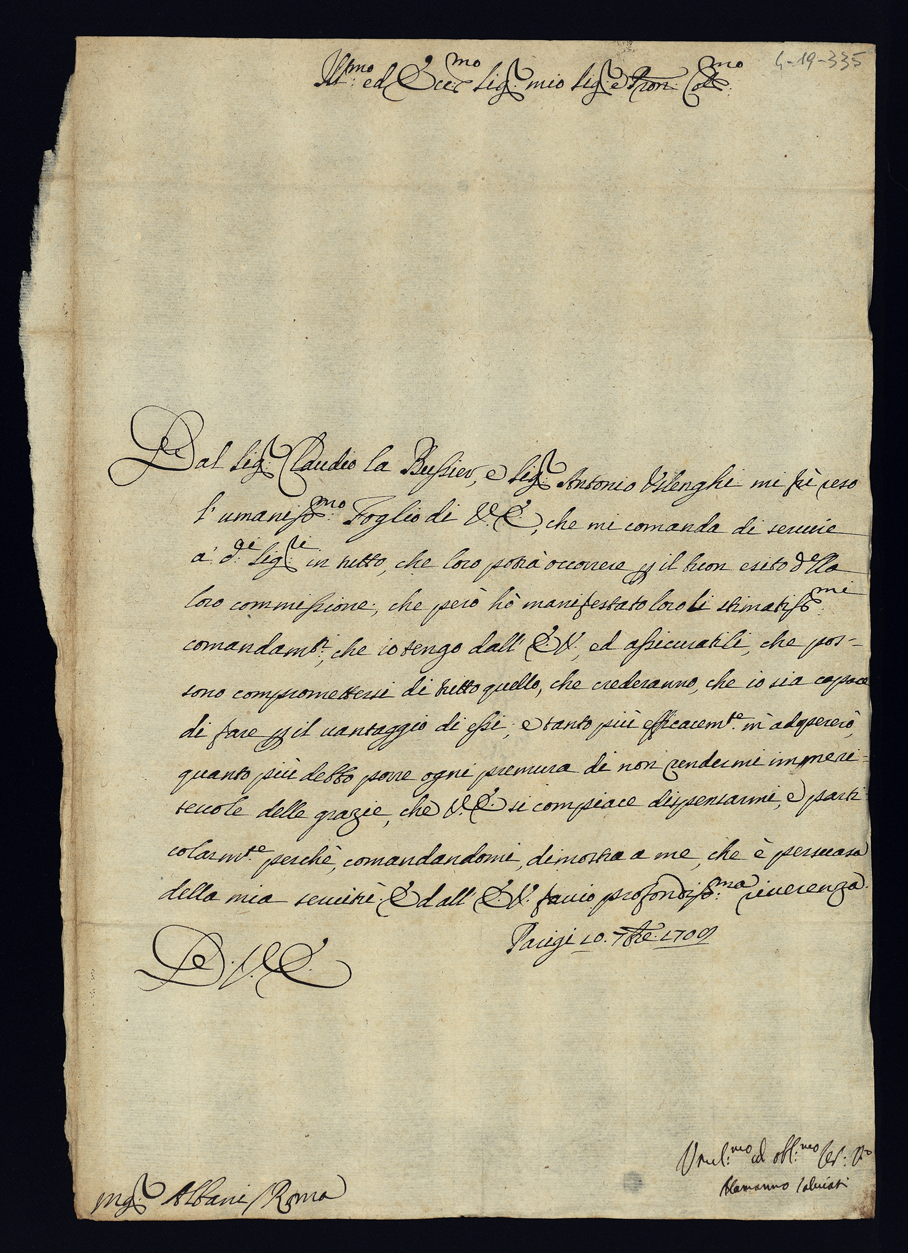 4-19-335
Ill.mo ed Ecc.mo Sig.r mio Sig.r e Pron Col.mo
Dal Sig.r Claudio la Bussier, e Sig.r Antonio Vilenghi mi fù reso
l'umaniss.mo Foglio di V.E., che mi comanda di servire
a' d.i Sig.ri in tutto, che loro potrà occorrere p il buon esito della
loro commissione, che però hò manifestato loro li stimatiss.mi
comandam.ti, che io tengo dall'E.V., ed assicuratili, che pos-
sono compromettersi di tutto quello, che crederanno, che io sia capace
di fare p il vantaggio di essi, e tanto più efficacem.te m'adopererò,
quanto più debbo porre ogni premura di non rendermi immeri-
tevole delle grazie, che V.E. si compiace dispensarmi, e parti
colarm.te perchè, comandandomi, dimostra a me, che è persuasa
della mia servitù. E dall'E.V. faccio profondiss.ma riverenza.
Parigi 10. 7bre. 1709
D. V. E.
Umil.mo ed obl.mo Ser. V.o
Alamanno Salviati
Mg.r Albani / Roma